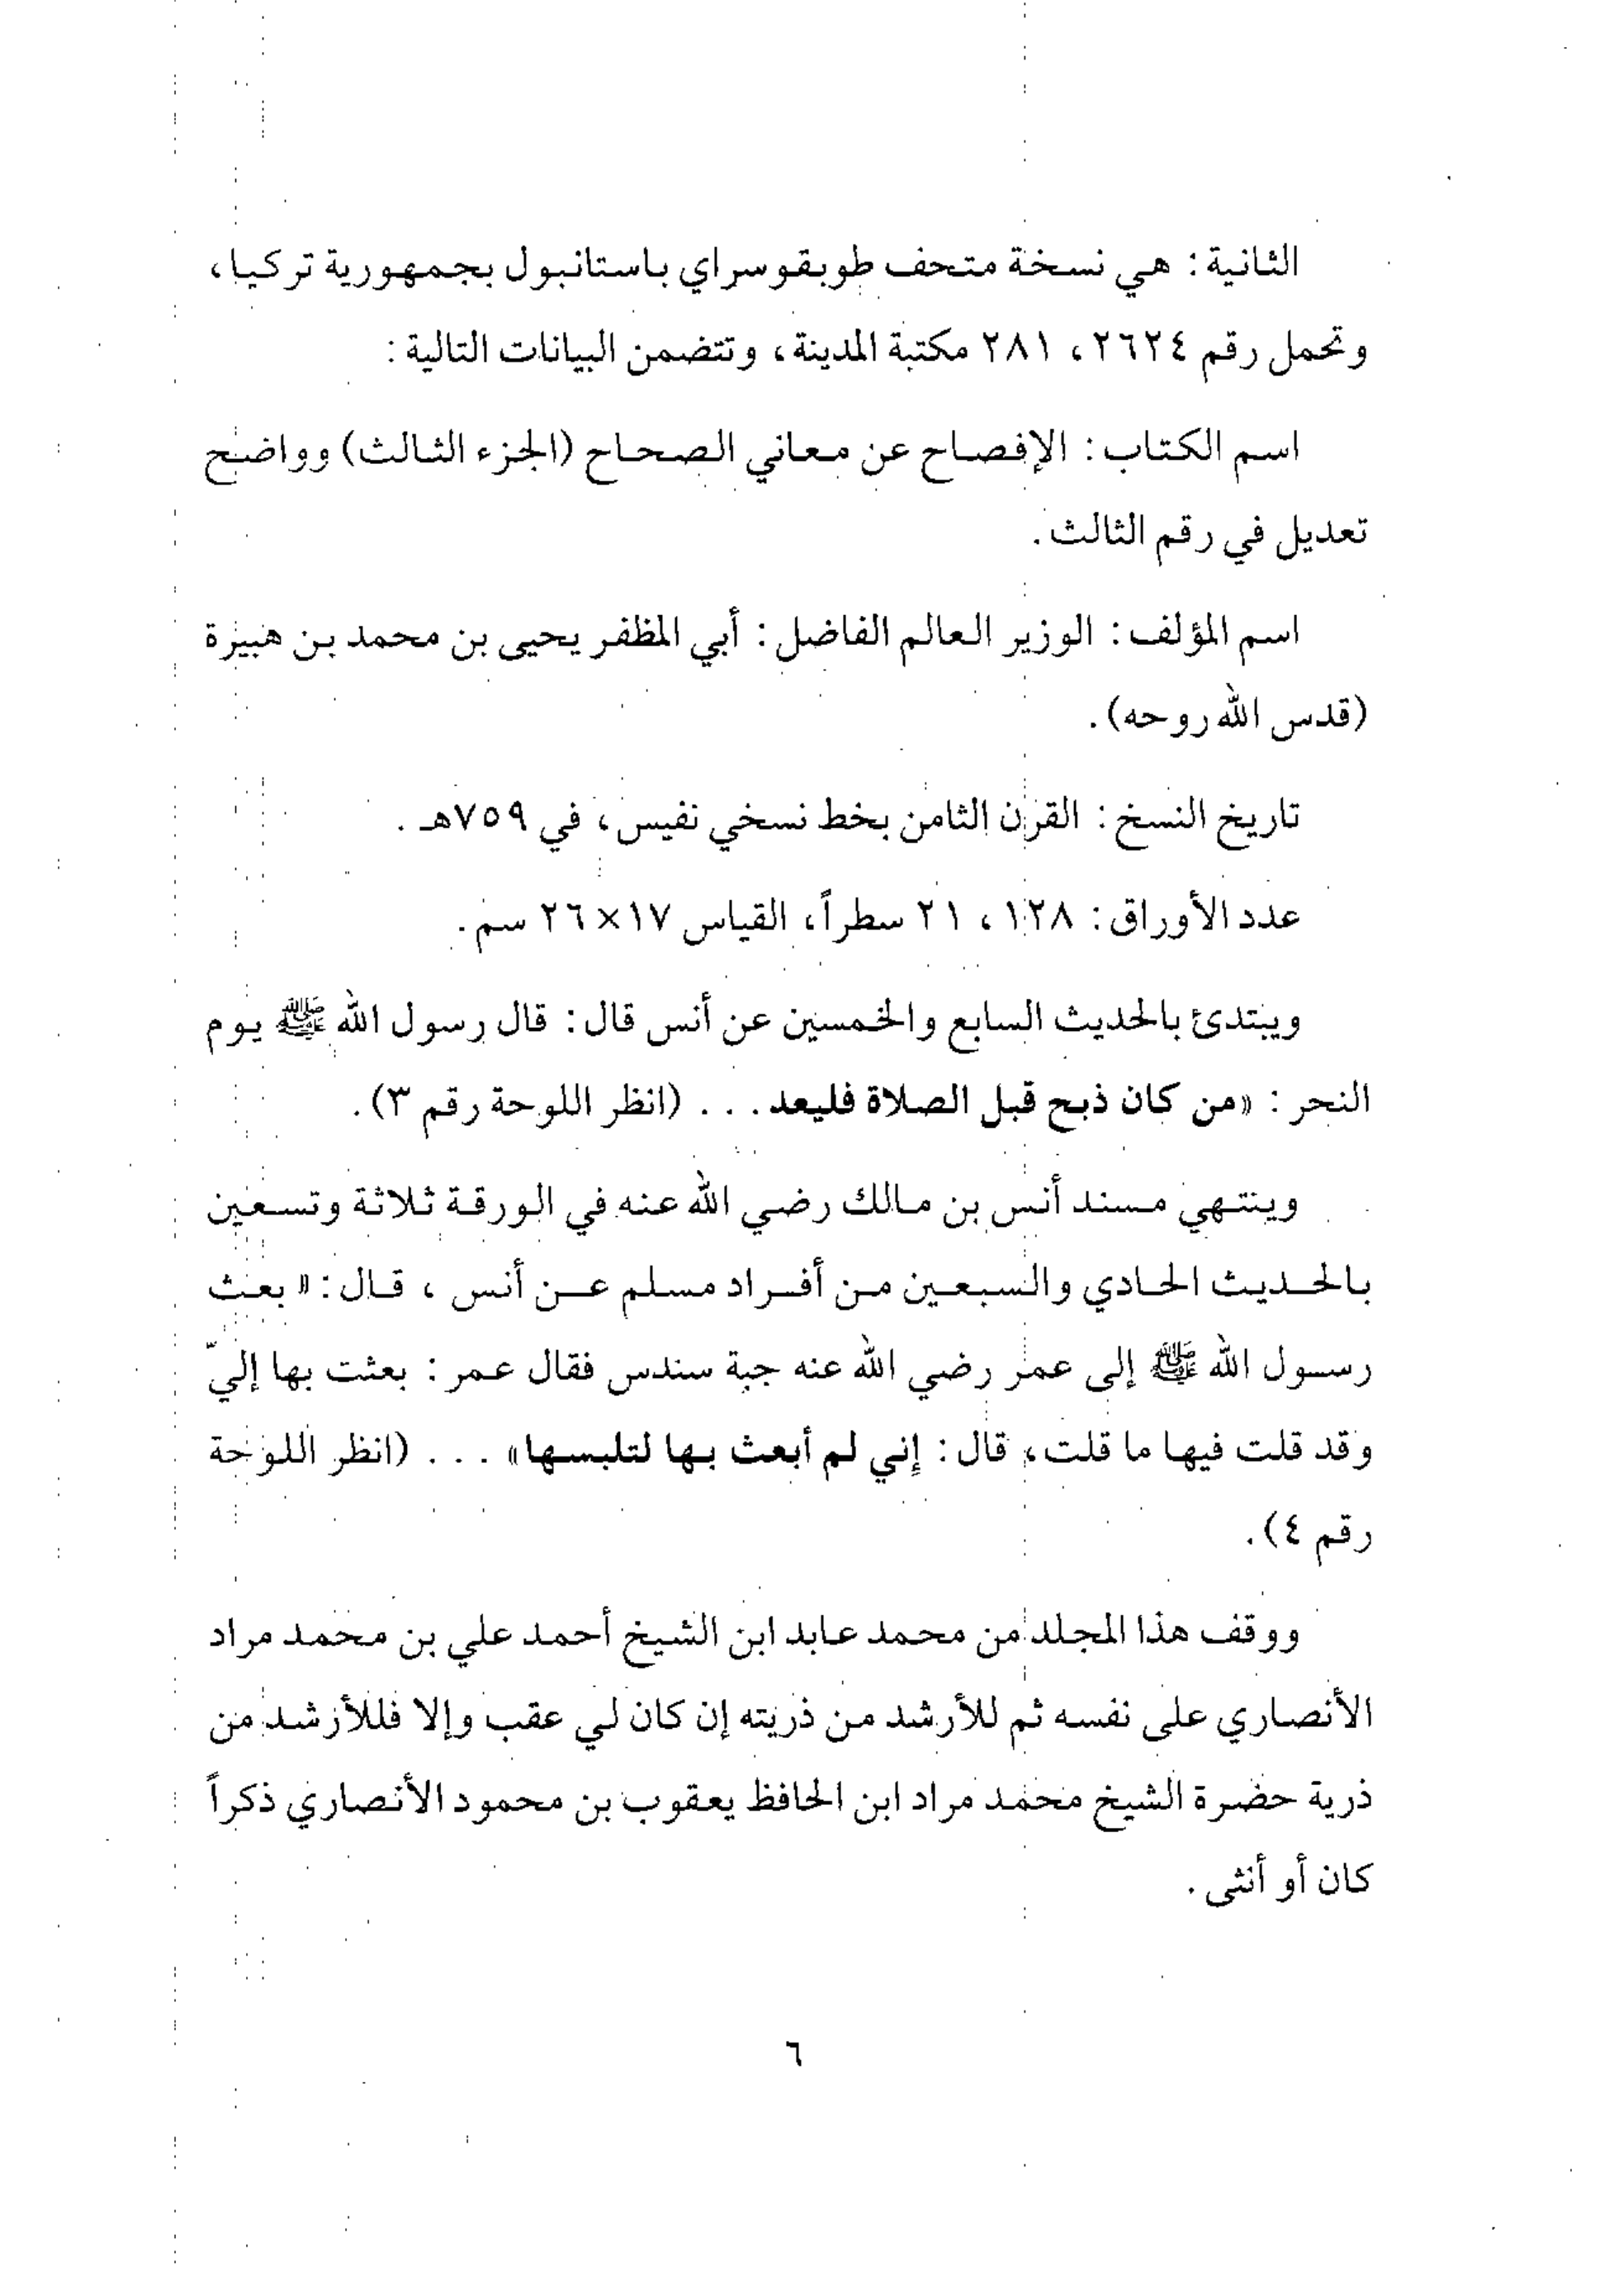 الثانية: هي نسخة متحف طوبقوسراي باستانبول بجمهورية تركيا،
وتحمل رقم ٢٦٢٤، ٢٨١ مكتبة المدينة، وتتضمن البيانات التالية:
اسم الكتاب: الإفصاح عن معاني الصحاح (الجزء الثالث) وواضح
تعديل في رقم الثالث.
اسم المؤلف: الوزير العالم الفاضل: أبي المظفر يحيى بن محمد بن هبيرة
(قدس الله روحه).
تاريخ النسخ: القرن الثامن بخط نسخي نفيس، في ٧٥٩هـ.
عدد الأوراق: ١٢٨، ٢١ سطراً، القياس ١٧×٢٦ سم.
ويبتدئ بالحديث السابع والخمسين عن أنس قال: قال رسول الله ﷺ يوم
النحر: «من كان ذبح قبل الصلاة فليعد... (انظر اللوحة رقم ٣).
وينتهي مسند أنس بن مالك رضي الله عنه في الورقة ثلاثة وتسعين
بالحديث الحادي والسبعين من أفراد مسلم عن أنس، قال: «بعث
رسول الله ﷺ إلى عمر رضي الله عنه جبة سندس فقال عمر: بعثت بها إليّ
وقد قلت فيها ما قلت، قال: إني لم أبعث بها لتلبسها»... (انظر اللوحة
رقم ٤).
ووقف هذا المجلد من محمد عابد ابن الشيخ أحمد علي بن محمد مراد
الأنصاري على نفسه ثم للأرشد من ذريته إن كان لي عقب وإلا فللأرشد من
ذرية حضرة الشيخ محمد مراد ابن الحافظ يعقوب بن محمود الأنصاري ذكراً
كان أو أنثى.
٦